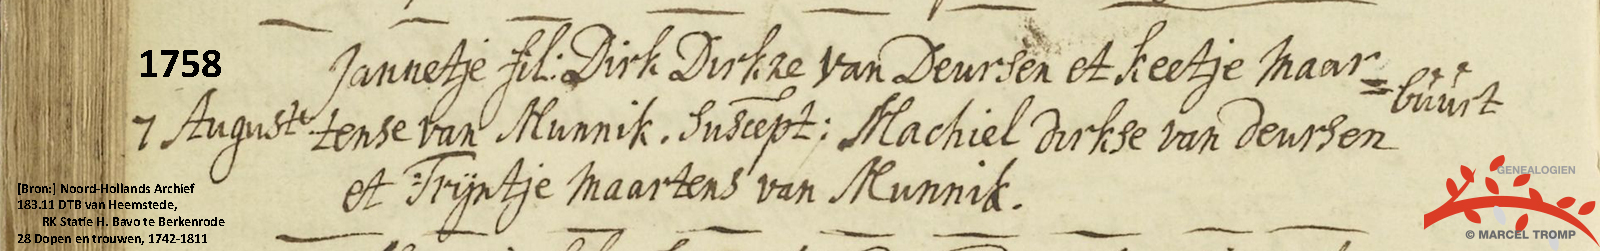 1758
Jannetje fil: Dirk Dirkze van Deursen et Keetje Maar=
büürt
7 Auguste tense van Munnik. Suscept: Machiel Dirkse van Deursen
et Trijntje Maartens van Munnik.
[Bron:] Noord-Hollands Archief
183.11 DTB van Heemstede,
RK Statie H. Bavo te Berkenrode
28 Dopen en trouwen, 1742-1811
GENEALOGIEN
© MARCEL TROMP